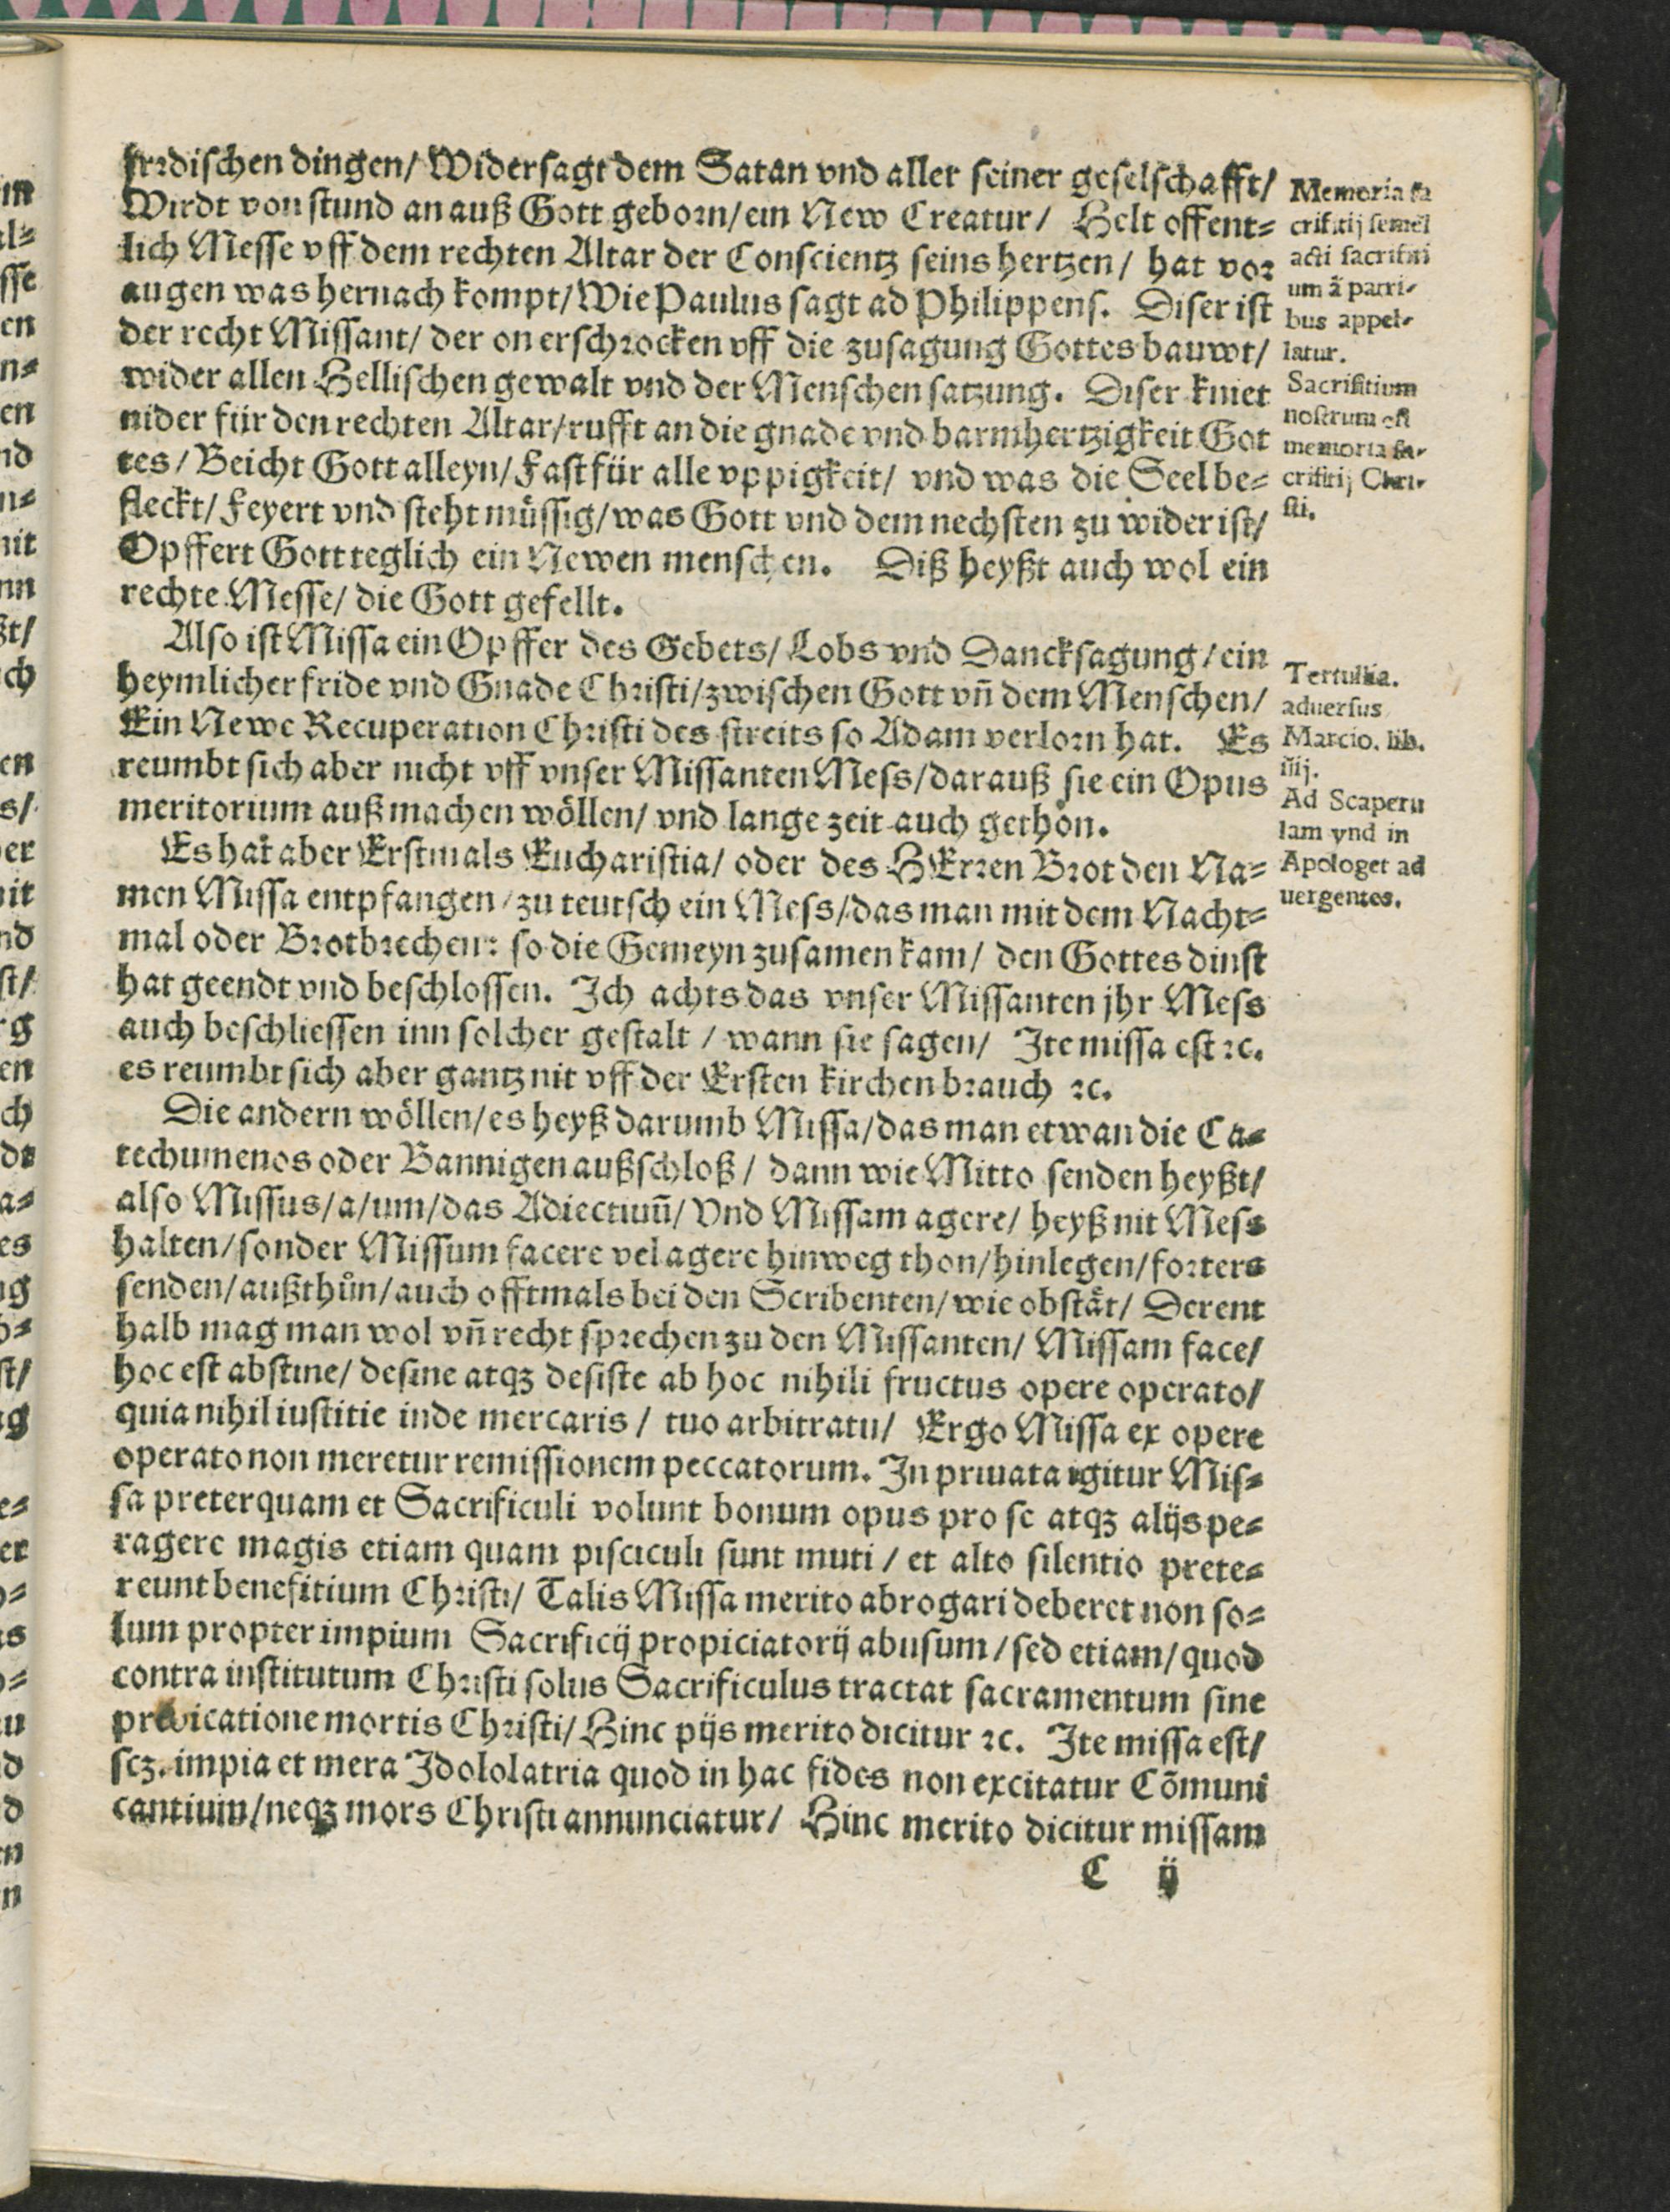 jrrdischen dingen/ Widersagt dem Satan vnd aller seiner geselschafft/
Wirdt von stund an auß Gott geborn/ ein New Creatur/ Helt offent⸗
lich Messe vff dem rechten Altar der Conscientz seins hertzen/ hat vor
augen was hernach kompt/ Wie Paulus sagt ad Philippens. Diser ist
der recht Missant/ der on erschrocken vff die zusagung Gottes bauwt/
wider allen Hellischen gewalt vnd der Menschen satzung. Diser kniet
nider für den rechten Altar/ rufft an die gnade vnd barmhertzigkeit Got
tes/ Beicht Gott alleyn/ Fast für alle vppigkeit/ vnd was die Seel be⸗
fleckt/ Feyert vnd steht müssig/ was Gott vnd dem nechsten zu wider ist/
Opffert Gott teglich ein Newen menschen. Diß heyßt auch wol ein
rechte Messe/ die Gott gefellt.
Also ist Missa ein Opffer des Gebets/ Lobs vnd Dancksagung/ ein
heymlicher fride vnd Gnade Christi/ zwischen Gott vñ dem Menschen/
Ein Newe Recuperation Christi des streits so Adam verlorn hat. Es
reumbt sich aber nicht vff vnser Missanten Mess/ darauß sie ein Opus
meritorium auß machen wöllen/ vnd lange zeit auch gethon.
Es hat aber Erstmals Eucharistia/ oder des HErren Brot den Na⸗
men Missa entpfangen/ zu teutsch ein Mess/ das man mit dem Nacht⸗
mal oder Brotbrechen: so die Gemeyn zusamen kam/ den Gottes dinst
hat geendt vnd beschlossen. Ich achts das vnser Missanten jhr Mess
auch beschliessen inn solcher gestalt / wann sie sagen/ Ite missa est ꝛc.
es reumbt sich aber gantz nit vff der Ersten kirchen brauch ꝛc.
Die andern wöllen/ es heyß darumb Missa/ das man etwan die Ca⸗
techumenos oder Bannigen außschloß/ dann wie Mitto senden heyßt/
also Missus/a/um/ das Adiectiuũ/ Vnd Missam agere/ heyß nit Mess
halten/ sonder Missum facere vel agere hinweg thon/ hinlegen/ forters
senden/ außthůn/ auch offtmals bei den Scribenten/ wie obstät/ Derent
halb mag man wol vñ recht sprechen zu den Missanten/ Missam face/
hoc est abstine/ desine atqȝ desiste ab hoc nihili fructus opere operato/
quia nihil iustitie inde mercaris / tuo arbitratu/ Ergo Missa ex opere
operato non meretur remissionem peccatorum. In priuata igitur Mis⸗
sa preterquam et Sacrificuli volunt bonum opus pro se atqȝ alijs pe⸗
ragere magis etiam quam pisciculi sunt muti / et alto silentio prete⸗
reunt benefitium Christi/ Talis Missa merito abrogari deberet non so⸗
lum propter impium Sacrificij propiciatorij abusum / sed etiam/ quod
contra institutum Christi solus Sacrificulus tractat sacramentum sine
predicatione mortis Christi/ Hinc pijs merito dicitur ꝛc. Ite missa est/
scȝ. impia et mera Idololatria quod in hac fides non excitatur Cõmuni
cantium/ neqȝ mors Christi annunciatur/ Hinc merito dicitur missam
C ij
Memoria sa
crifitij semel
acti sacrifiti
um ã patri⸗
bus appel⸗
latur.
Sacrifitium
nostrum est
memoria sa⸗
crifitij Chri⸗
sti.
Tertulia.
aduersus
Marcio. lib.
iiij.
Ad Scaperu
lam vnd in
Apologet ad
uergentes.